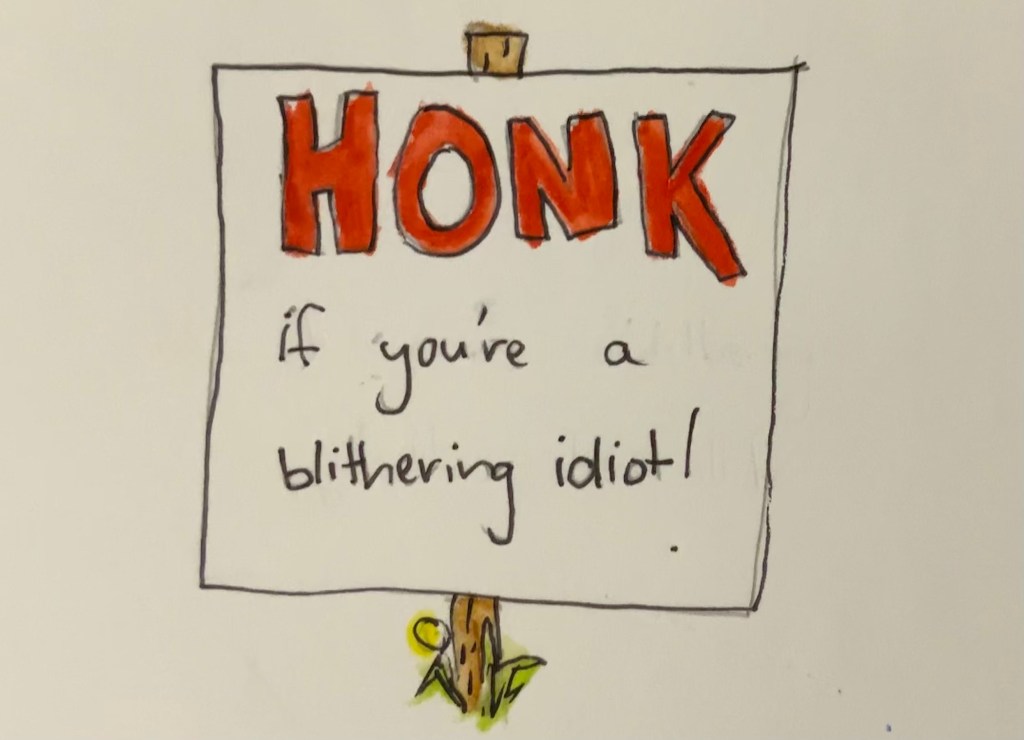 HONK
if you're a
blithering idiot!